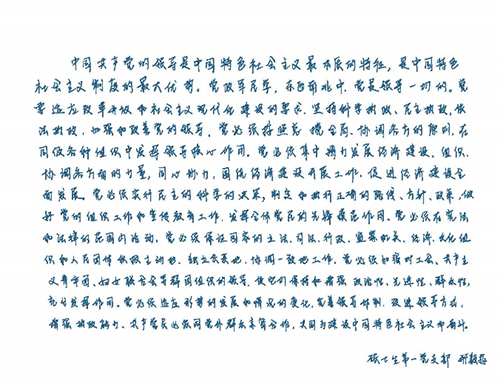 中国共产党的领导是中国特色社会主义最本质的特征，是中国特色
社会主义制度的最大优势。党政军民学，东西南北中，党是领导一切的。党
要适应改革开放和社会主义现代化建设的要求，坚持科学执政、民主执政、依
法执政，加强和改善党的领导。党必须按照总揽全局、协调各方的原则，在
同级各种组织中发挥领导核心作用。党必须集中精力发展经济建设，组织、
协调各方面的力量，同心协力，围绕经济建设开展工作，促进经济建设全
面发展。党必须实行民主的科学的决策，制定和执行正确的路线、方针、政策，做
好党的组织工作和宣传教育工作，发挥全体党员的先锋模范作用。党必须在宪法
和法律的范围内活动。党必须保证国家的立法、司法、行政、监察机关，经济、文化组
织和人民团体积极主动地、独立负责地、协调一致地工作。党必须加强对工会、共产主
义青年团、妇女联合会等群团组织的领导，使它们保持和增强政治性、先进性、群众性，
充分发挥作用。党必须适应形势的发展和情况的变化，完善领导体制，改进领导方式，
增强执政能力。共产党员必须同党外群众亲密合作，共同为建设中国特色社会主义而奋斗。
硕士生第一党支部